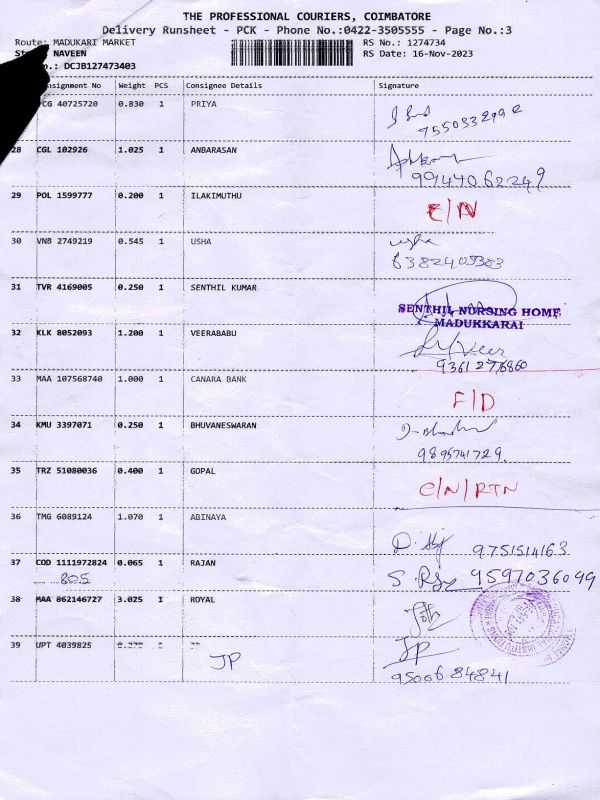 THE PROFESSIONAL COURIERS, COIMBATORE
Delivery Runsheet - PCK - Phone No.:0422-3505555 - Page No.:3
Route: MADUKARI MARKET RS No.: 1274734
NAVEEN RS Date: 16-Nov-2023
DCJB127473403
Consignment No Weight PCS Consignee Details Signature
40725720 0.830 1 PRIYA
28 CGL 102926 1.025 1 ANBARASAN
9944062249
29 POL 1599777 0.200 1 ILAKIMUTHU
C/N
30 VNB 2749219 0.545 1 USHA
usha
6382405383
31 TVR 4169005 0.250 1 SENTHIL KUMAR
SENTHIL NURSING HOME
MADUKKARAI
32 KLK 8052093 1.200 1 VEERABABU
Veer
33 MAA 107568740 1.000 1 CANARA BANK
F/D
34 KMU 3397071 0.250 1 BHUVANESWARAN
9895741729.
35 TRZ 51080036 0.400 1 GOPAL
C/N/RTN
36 TMG 6089124 1.070 1 ABINAYA
9751514163
37 COD 1111972824 0.065 1 RAJAN
805
9597036099
38 MAA 862146727 3.025 1 ROYAL
39 UPT 4039825 0.270 1 JP
JP
JP
9500684841